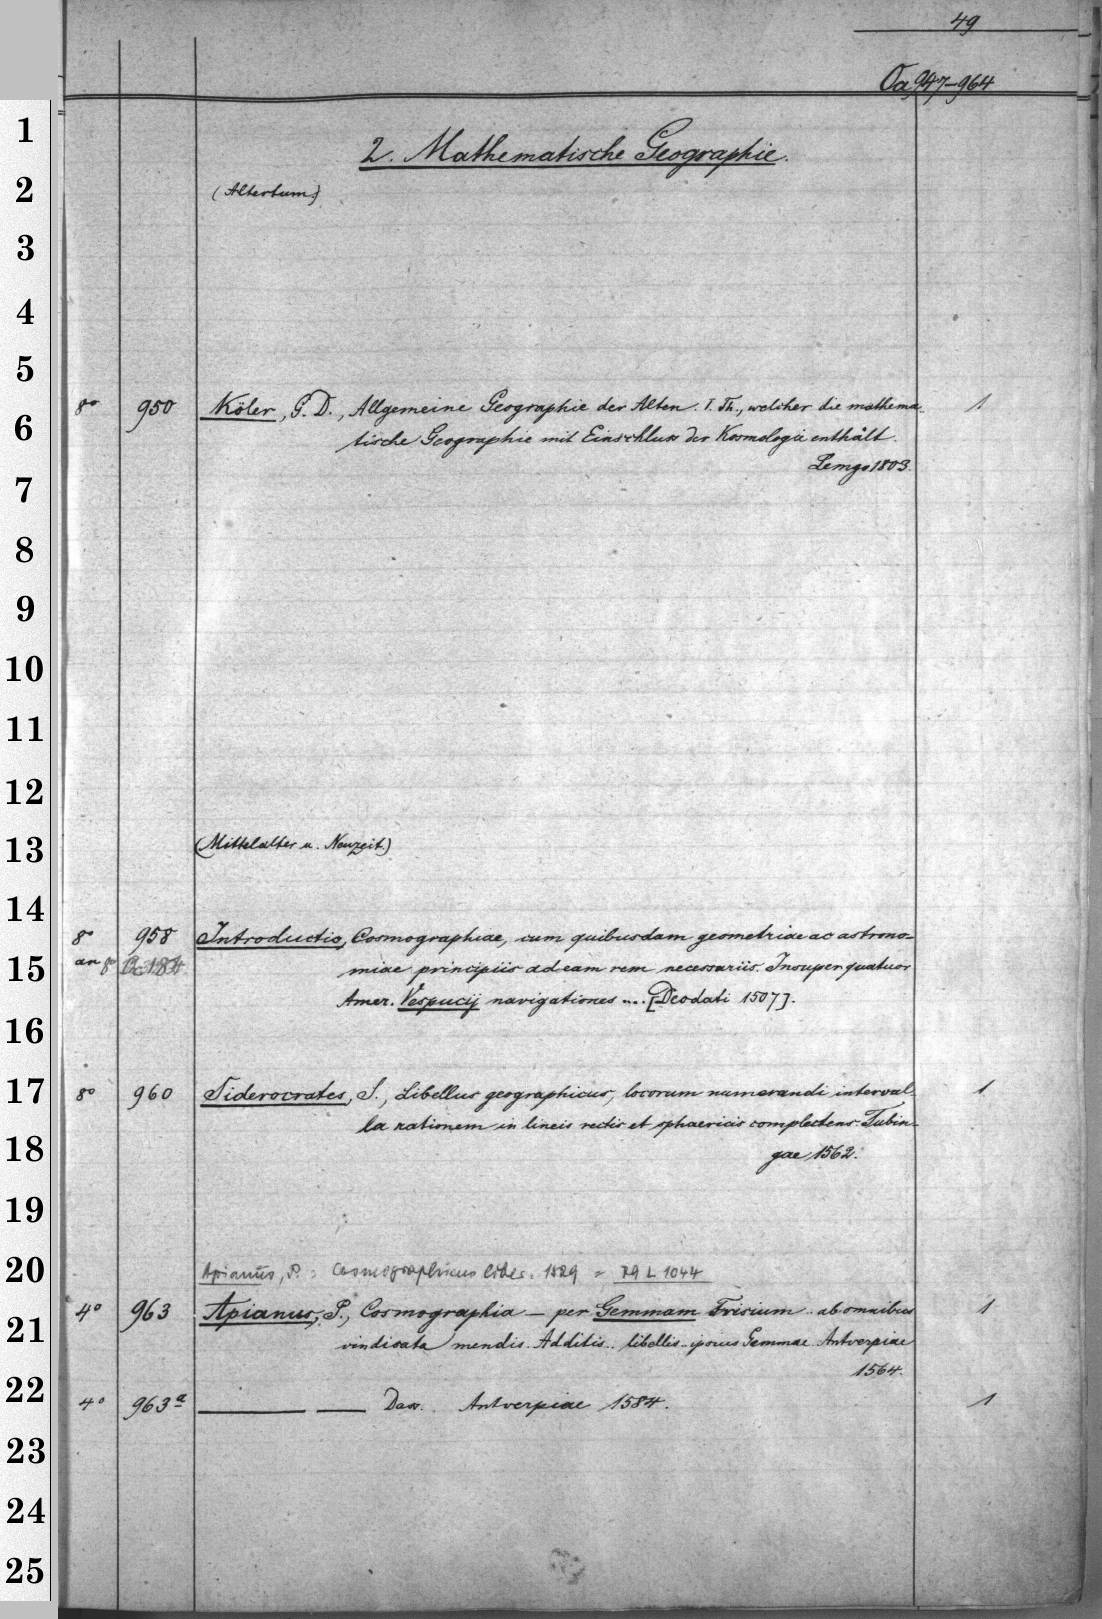 49
Oa 947-964
1
2. Mathematische Geographie.
2
(Altertum.)
3
4
5
8° 950 Köler, G. D., Allgemeine Geographie der Alten. I. Th., welcher die mathema- 1
6
tische Geographie mit Einschluss der Kosmologie enthält.
Lemgo 1803.
7
8
9
10
11
12
13
(Mittelalter u. Neuzeit.)
14
8° 958 Introductio, Cosmographiae, cum quibusdam geometriae ac astrono-
15
an 8° miae principiis ad eam rem necessariis. Insuper quatuor
Amer. Vespucij navigationes .... [Deodati 1507].
16
17
8° 960 Siderocrates, S., Libellus geographicus, locorum numerandi interval- 1
la rationem in lineis rectis et sphaericis complectens. Tubin-
18
gae 1562.
19
20
Apianus, P. : Cosmographicus liber. 1529 = R9 L 1044
4° 963 Apianus, P., Cosmographia — per Gemmam Frisium .. ab omnibus 1
21
vindicata mendis. Additis .. libellis .. ipsius Gemmae. Antverpiae
1564.
22
4° 963a ——— —— Dass. Antverpiae 1584. 1
23
24
25